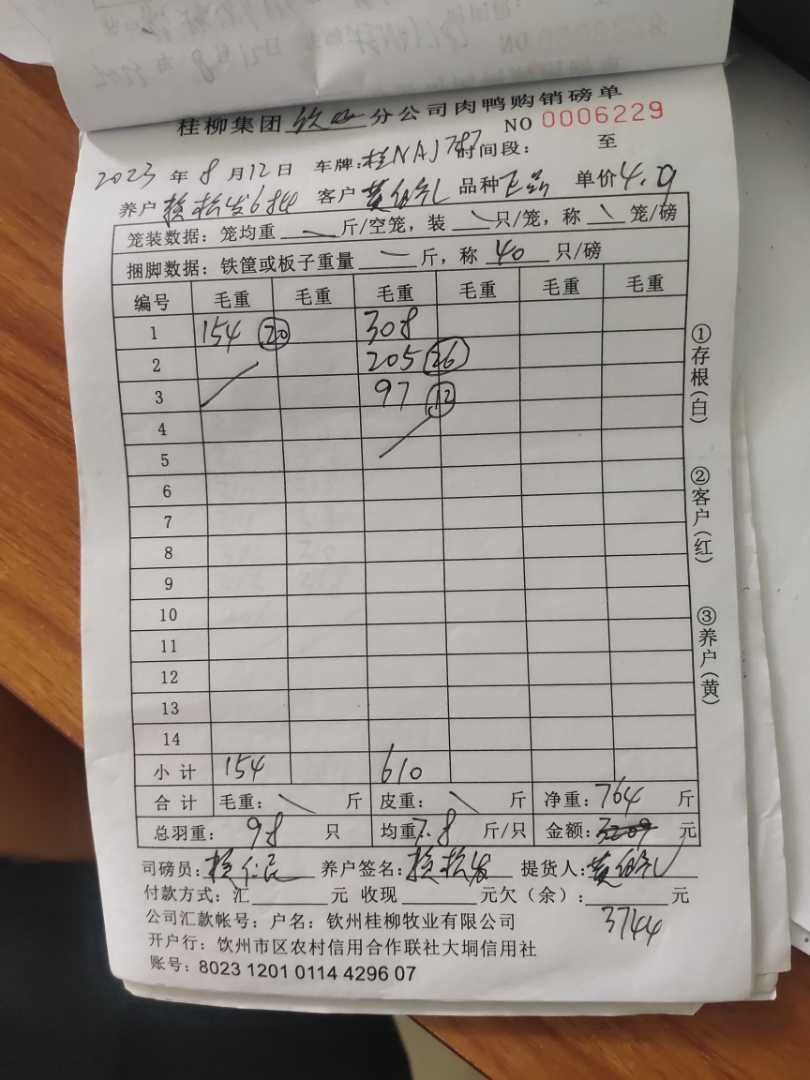 桂柳集团钦州分公司肉鸭购销磅单
NO 0006229
2023年8月12日 车牌:桂NAJ787 时间段: 至
养户 客户 品种正品 单价4.9
笼装数据: 笼均重 斤/空笼, 装 只/笼, 称 笼/磅
捆脚数据: 铁筐或板子重量 斤, 称 40 只/磅
编号 毛重 毛重 毛重 毛重 毛重 毛重
1 154 20 308
2 205 26
3 97 12
4
5
6
7
8
9
10
11
12
13
14
小计 154 610
合计 毛重: 斤 皮重: 斤 净重: 764 斤
总羽重: 98 只 均重7.8 斤/只 金额: 元
司磅员: 养户签名: 提货人:
付款方式: 汇 元 收现 元欠(余): 元
3744
公司汇款帐号: 户名: 钦州桂柳牧业有限公司
开户行: 钦州市区农村信用合作联社大垌信用社
账号: 8023 1201 0114 4296 07
①存根(白)
②客户(红)
③养户(黄)